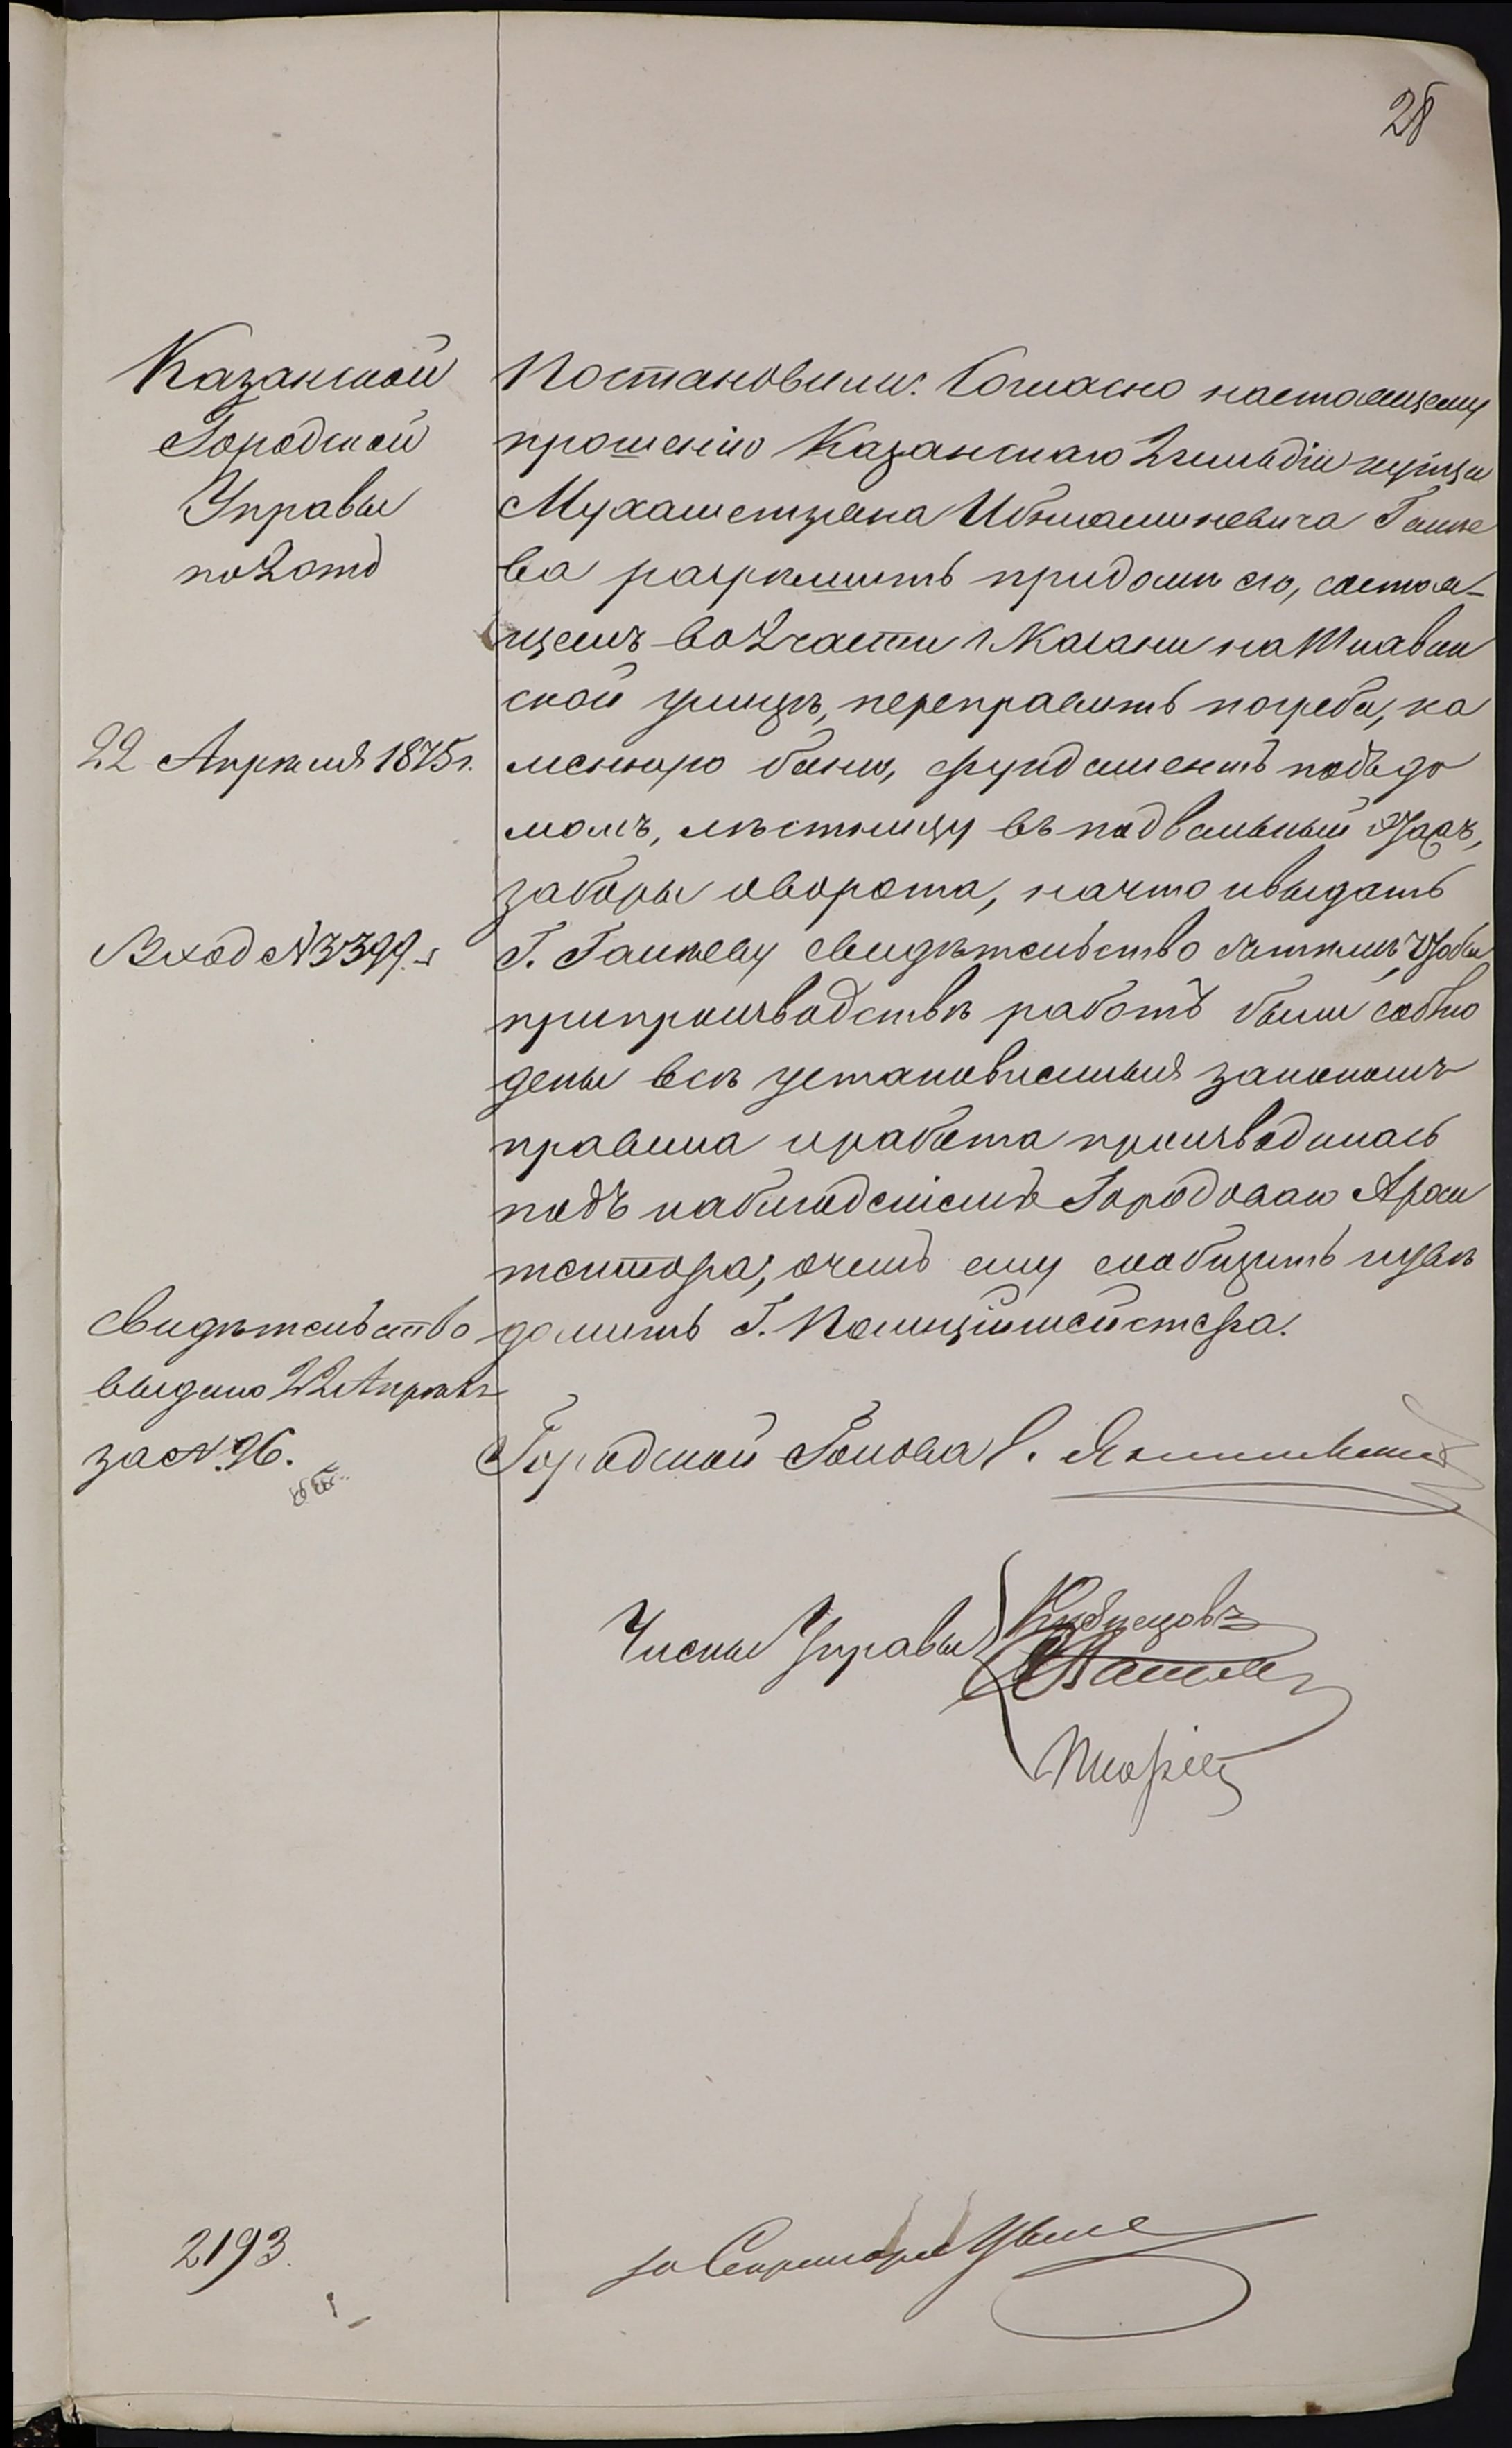 28
Казанской
Городской
Управы
по 2 отд
22 Апрѣля 1875 г.
Вход № 3399.
Свидѣтельство
выдано 22 Апрѣля
за № 96.
2193.
Постановили: Согласно настоящему
прошенію Казанскаго 2 гильдіи купца
Мухаметзяна Ибніаминовича
ва разрѣшить при домѣ его, состоя-
щемъ во 2 части г. Казани на
ской улицѣ, переправить погреба, ка
менную баню, фундаментъ подъ до
момъ, лѣстницу въ подвальный этажъ,
заборы и ворота, на что и выдать
Г. свидѣтельство съ тѣмъ, чтобы
при производствѣ работъ были соблю
дены всѣ установленныя закономъ
правила и работа производилась
подъ наблюденіемъ Городоваго Архи
тектора; о чемъ ему сообщить и увѣ
домить Г. Полиціймейстера.
Городской Голова
Члены Управы
за Секретаря